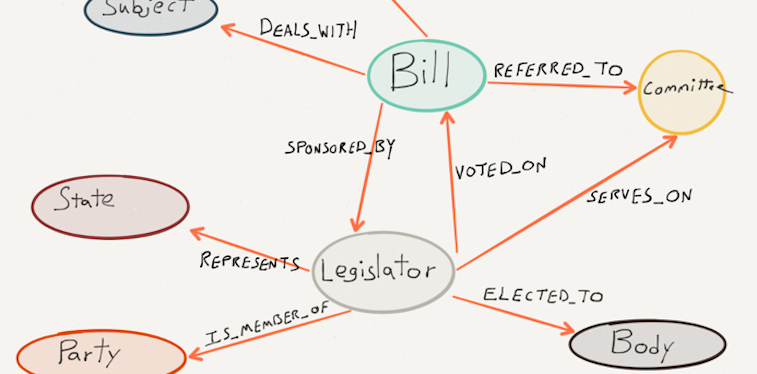 Subject
DEALS_WITH
Bill
REFERRED_TO
Committee
SPONSORED_BY
VOTED_ON
SERVES_ON
State
REPRESENTS
Legislator
ELECTED_TO
IS_MEMBER_OF
Party
Body